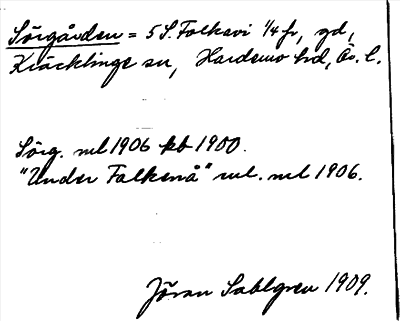 Sörgården = 5 S. Folkavi 1/4 fr, gd,
Kräcklinge sn, Hardemo hd, Ör. l.
Sörg. ml 1906 kb 1900.
"Under Falkenå" ml. ml 1906.
Jöran Sahlgren 1909.